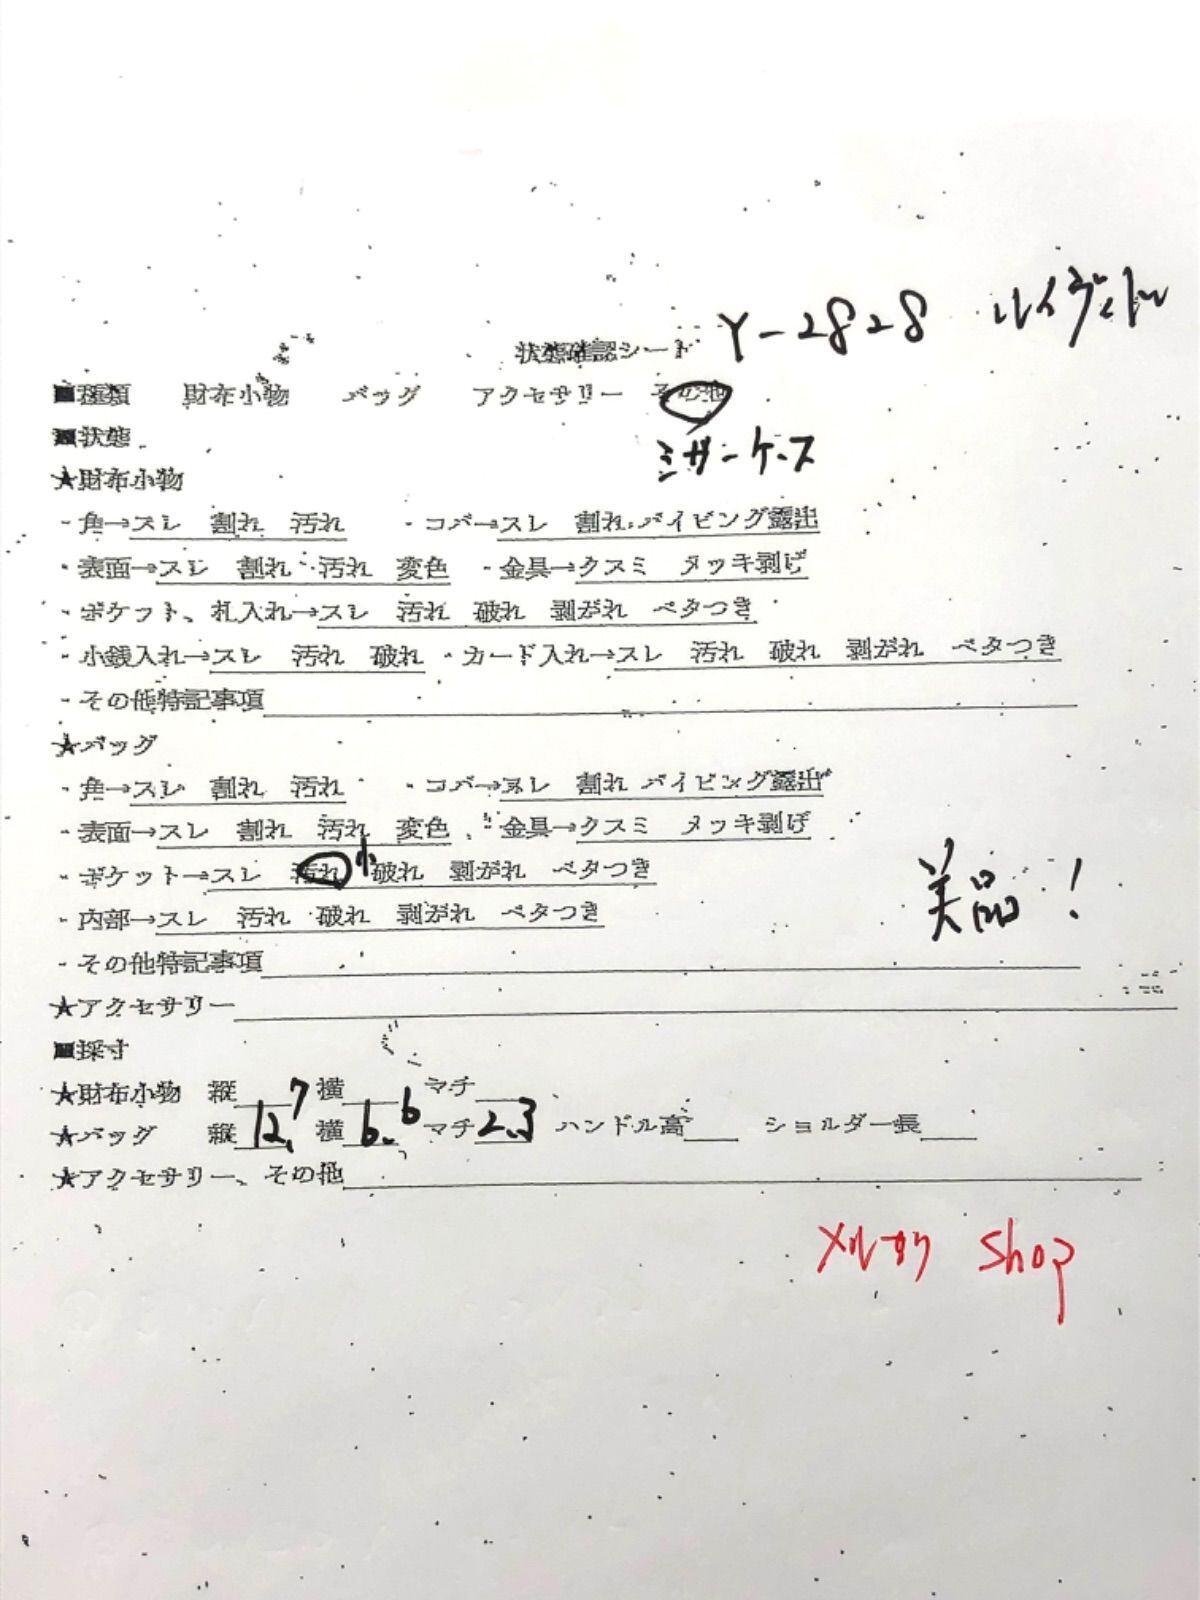 状態確認シート Y-2828 ルイヴィトン
■種類 財布小物 バッグ アクセサリー その他
■状態 シガーケース
★財布小物
・角→スレ 割れ 汚れ ・コバ→スレ 割れ パイピング露出
・表面→スレ 割れ 汚れ 変色 ・金具→クスミ メッキ剥げ
・ポケット、札入れ→スレ 汚れ 破れ 剥がれ ベタつき
・小銭入れ→スレ 汚れ 破れ ・カード入れ→スレ 汚れ 破れ 剥がれ ベタつき
・その他特記事項
★バッグ
・角→スレ 割れ 汚れ ・コバ→スレ 割れ パイピング露出
・表面→スレ 割れ 汚れ 変色 ・金具→クスミ メッキ剥げ
・ポケット→スレ 汚れ 小 破れ 剥がれ ベタつき
美品!
・内部→スレ 汚れ 破れ 剥がれ ベタつき
・その他特記事項
★アクセサリー
■採寸
★財布小物 縦 横 マチ
★バッグ 縦12.7 横6.6 マチ2.3 ハンドル高 ショルダー長
★アクセサリー、その他
メルカリ Shop